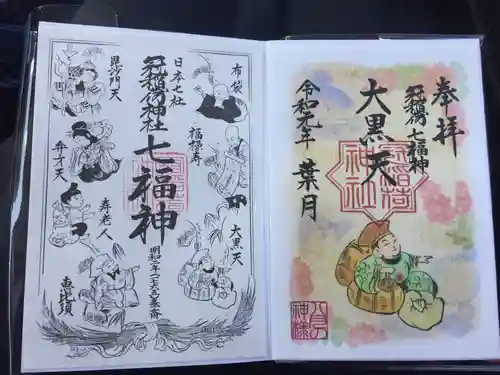 奉拝
冠稲荷七福神
大黒天
令和元年 葉月
冠稲荷神社
八月の神様
布袋
福禄寿
大黒天
日本七社
冠稲荷神社
七福神
毘沙門天
弁才天
寿老人
恵比須